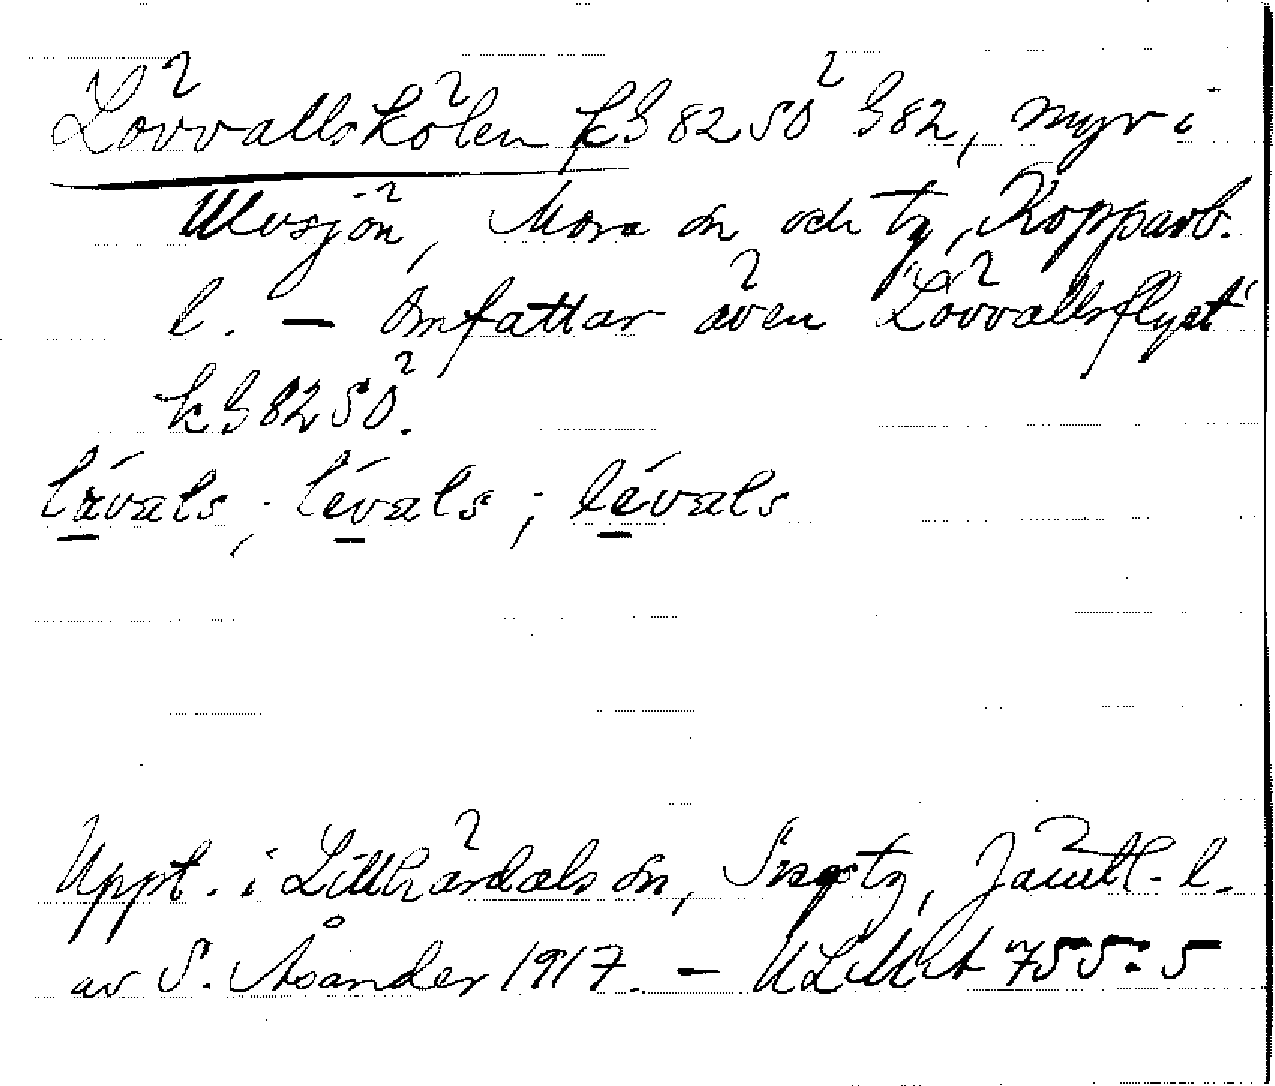 Lövvallskölen kG 82 50 G82, myr i
Ulvsjön, Mora sn och tg, Kopparb.
l. – Omfattar även Lövvallsflyet
kG 82 50.
lävals ; lévals ; lévals
Uppt. i Lillhärdals sn, Svegs tg, Jämtl. l.
av S. Åsander 1917. – ULMA 755:5